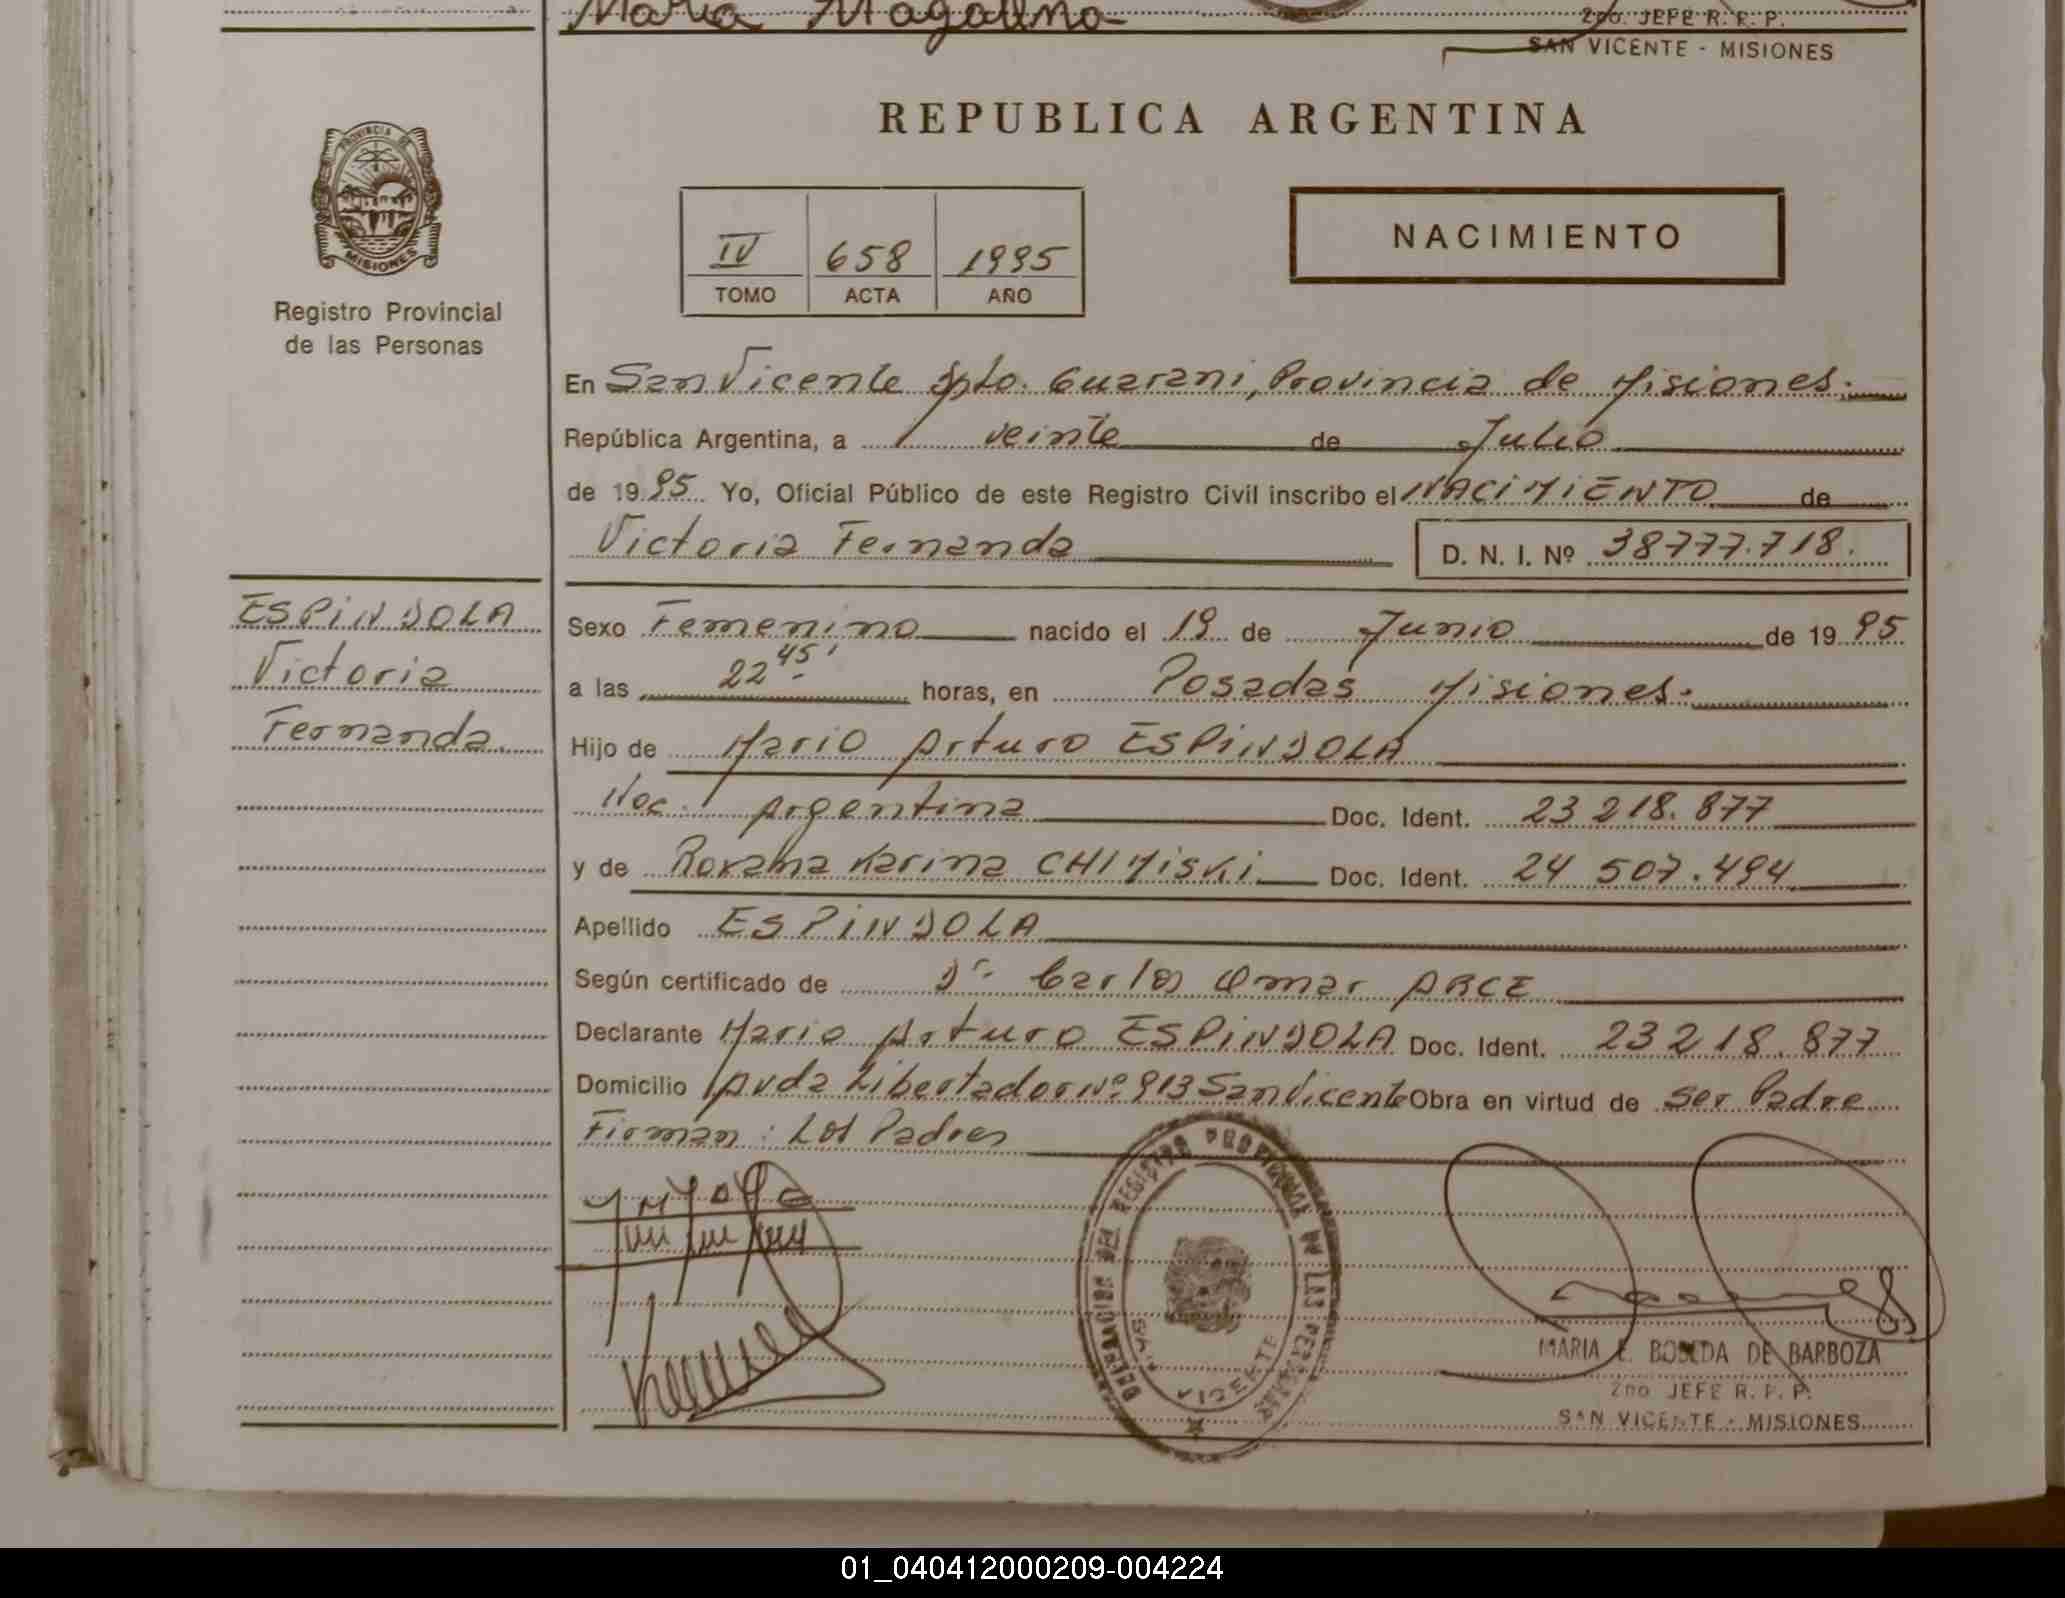 Maria Magdalena
2do. JEFE R. P. P.
SAN VICENTE - MISIONES
PROVINCIA DE
MISIONES
Registro Provincial
de las Personas
REPUBLICA ARGENTINA
IV 658 1995
TOMO ACTA AÑO
NACIMIENTO
En San Vicente Dpto. Guarani, Provincia de Misiones.
República Argentina, a veinte de Julio
de 1995 Yo, Oficial Público de este Registro Civil inscribo el NACIMIENTO de
Victoria Fernanda D. N. I. Nº 38777.718.
ESPINDOLA
Victoria
Fernanda
Sexo Femenino nacido el 19 de Junio de 1995
a las 22 45' horas, en Posadas Misiones.
Hijo de Mario Arturo ESPINDOLA
Nac. Argentina Doc. Ident. 23 218.877
y de Roxana Karina CHIMISKI Doc. Ident. 24 507.494
Apellido ESPINDOLA
Según certificado de Dr Carlos Omar ARCE
Declarante Mario Arturo ESPINDOLA Doc. Ident. 23218.877
Domicilio Avda Libertador Nº 913 San Vicente Obra en virtud de Ser Padre
Firman: Los Padres
DELEGACION DEL REGISTRO PROVINCIAL DE LAS PERSONAS
SAN VICENTE
MARIA E. BOBEDA DE BARBOZA
2do JEFE R. P. P.
SAN VICENTE - MISIONES
01_040412000209-004224